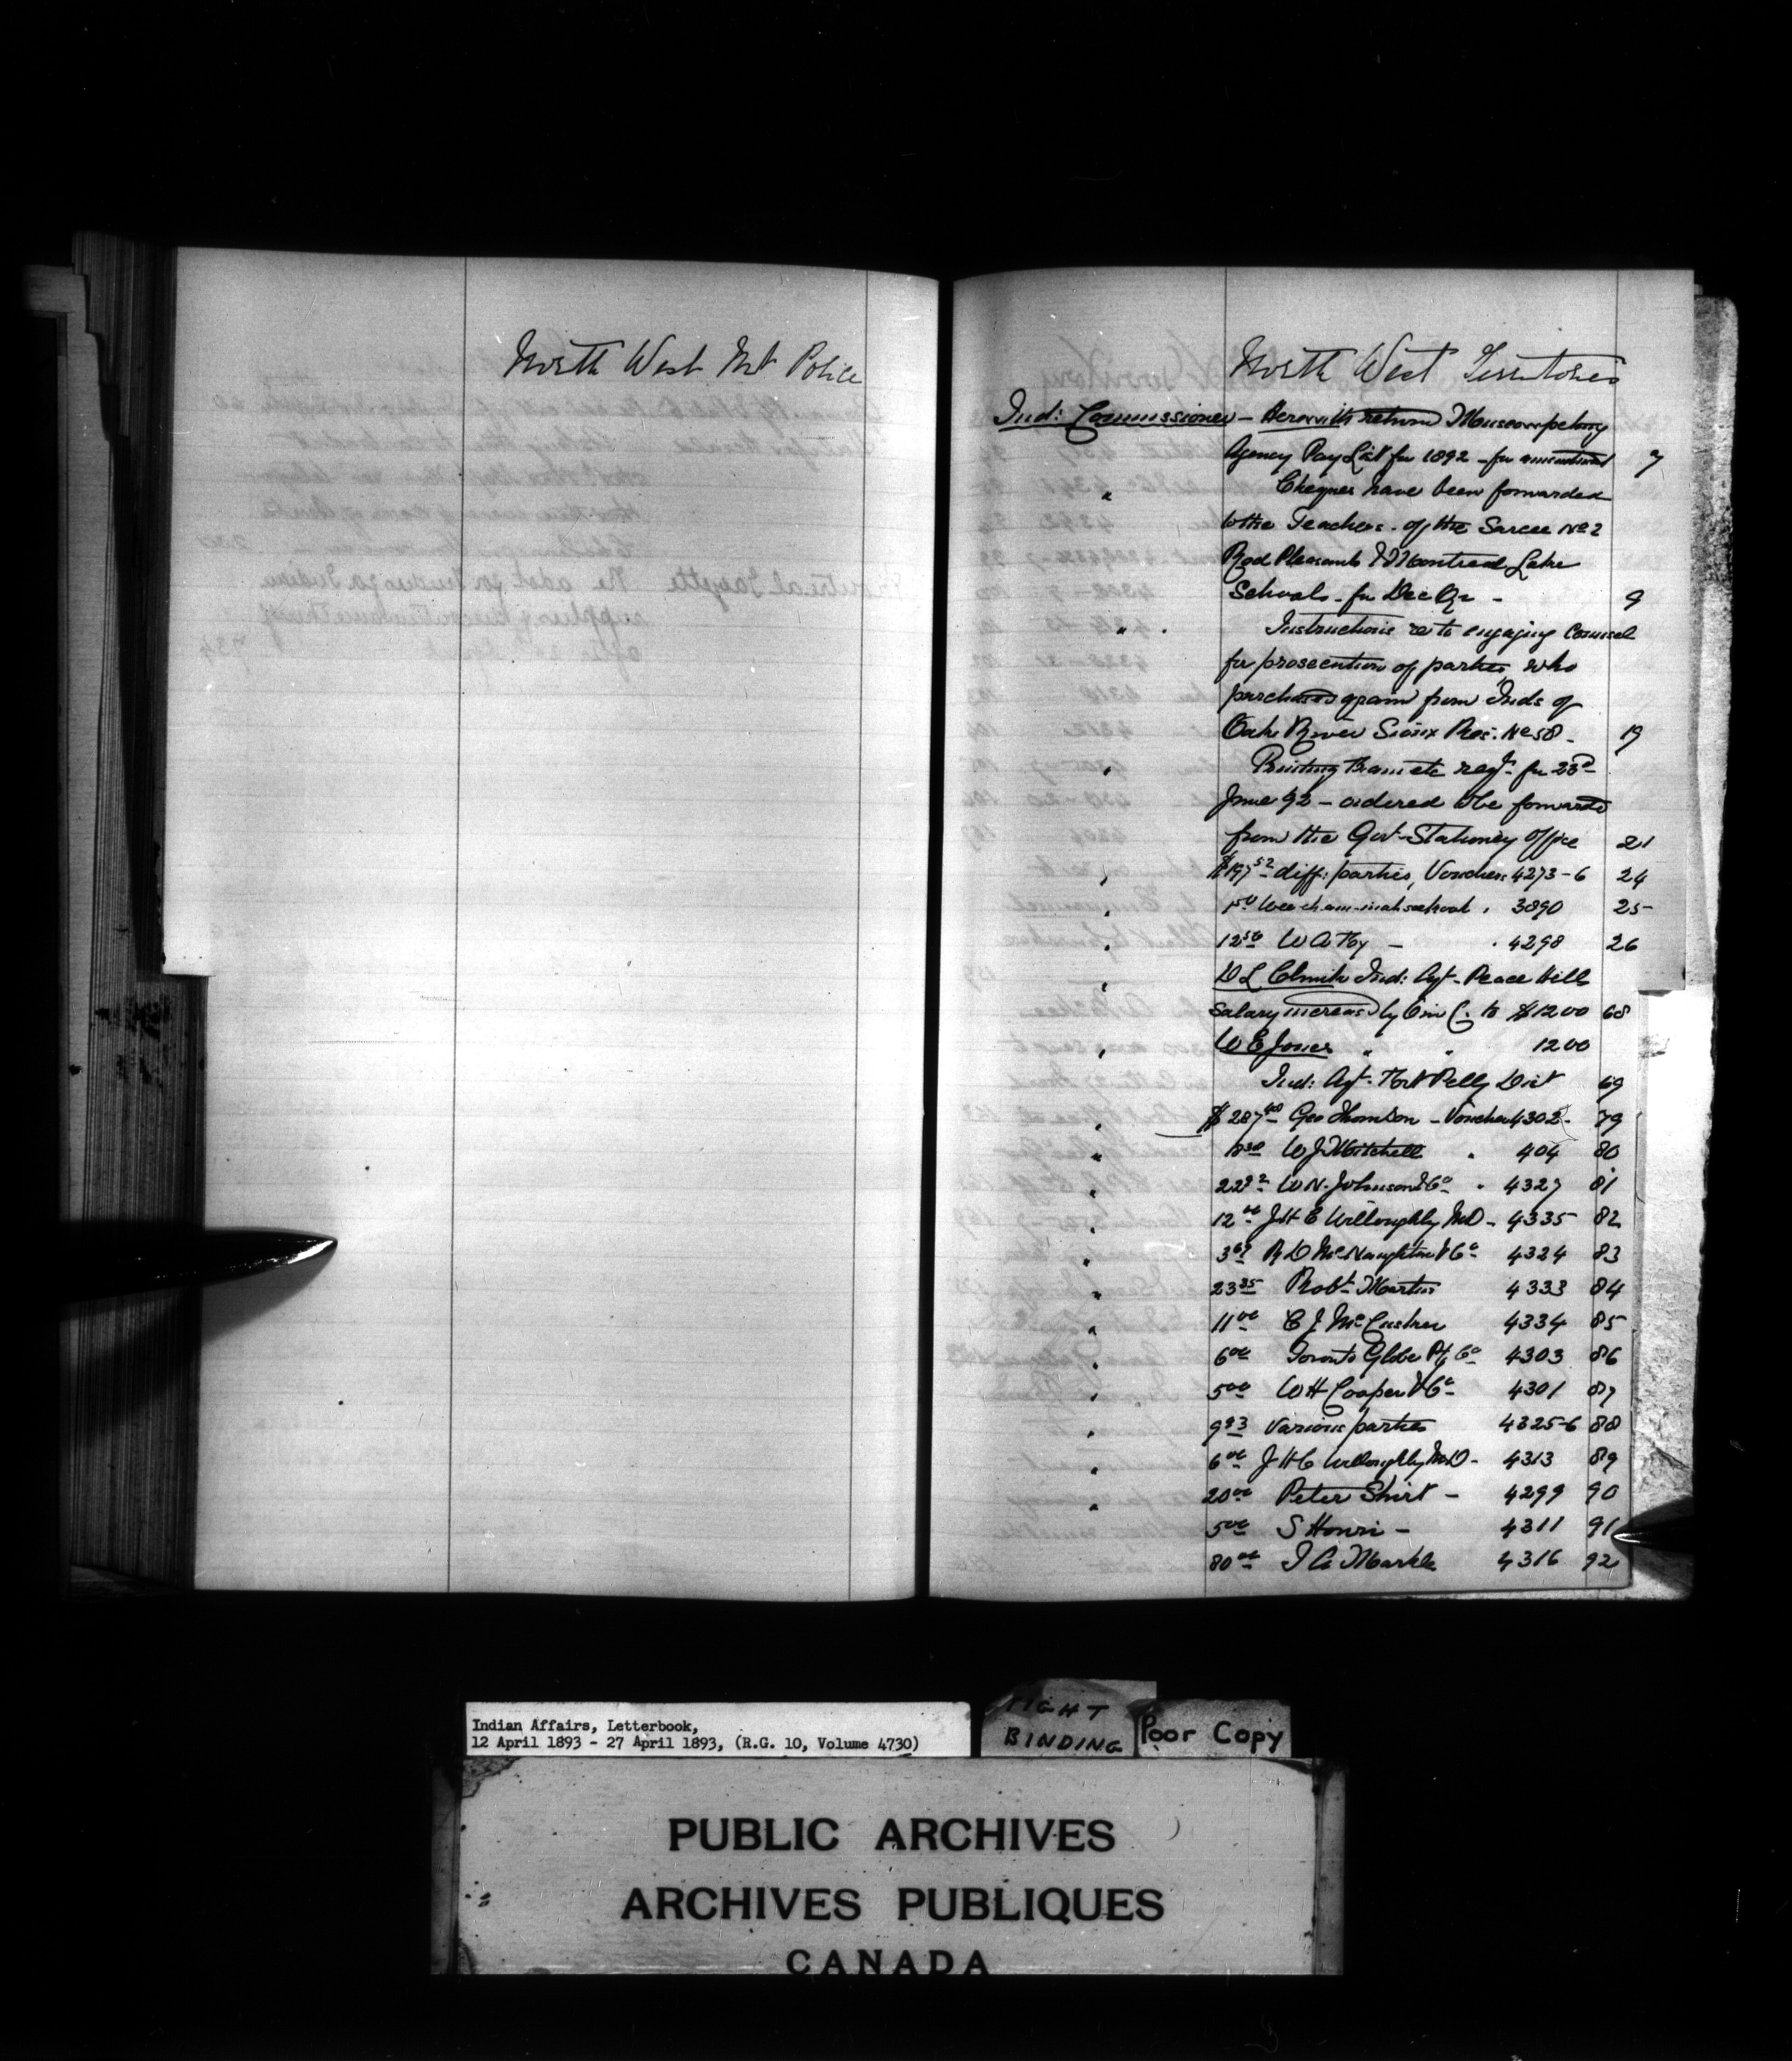 North West Mt Police
North West Territories
Ind: Commissioner - Herewith return Muscowpetung
Agency Pay List for 1892 - for amendment 7
" Cheques have been forwarded
to the Teachers of the Sarcee No 2
Red Pheasants & Montreal Lake
Schools - for Dec Qr - 9
" Instructions re to engaging Counsel
for prosecution of parties who
purchased grain from Inds of
Oak River Sioux Res: No 58 - 19
" Printing Forms etc reqd for
June 92 - ordered to be forwarded
from the Govt Stationery Office 21
" $197.52 diff: parties, Vouchers 4273-6 24
" school " 3890 25
" 12.50 W A " 4298 26
" D L Clink Ind: Agt - Peace Hills
Salary increased by O in C. to $1200 68
" W E Jones " " 1200
Ind: Agt - Fort Pelly Dist 69
" $287.40 Geo Thomson - Voucher 4302 - 79
" W J Mitchell " 404 80
" 22.92 W N. Johnson & Co " 4327 81
" 12.00 J H C Willoughby M.D - 4335 82
" 3.67 R D McNaughton & Co 4324 83
" 23.35 Robt Martin 4333 84
" 11.00 C J McCusker 4334 85
" 6.00 Toronto Globe Ptg Co 4303 86
" 5.00 W H Cooper & Co 4301 87
" 9.93 Various parties 4325-6 88
" 6.00 J H C Willoughby M.D - 4313 89
" 20.00 Peter Shirt - 4299 90
5.00 S Houri - 4311 91
80.00 J A Markle 4316 92
Indian Affairs, Letterbook,
12 April 1893 - 27 April 1893, (R.G. 10, Volume 4730)
TIGHT
BINDING
Poor Copy
PUBLIC ARCHIVES
ARCHIVES PUBLIQUES
CANADA